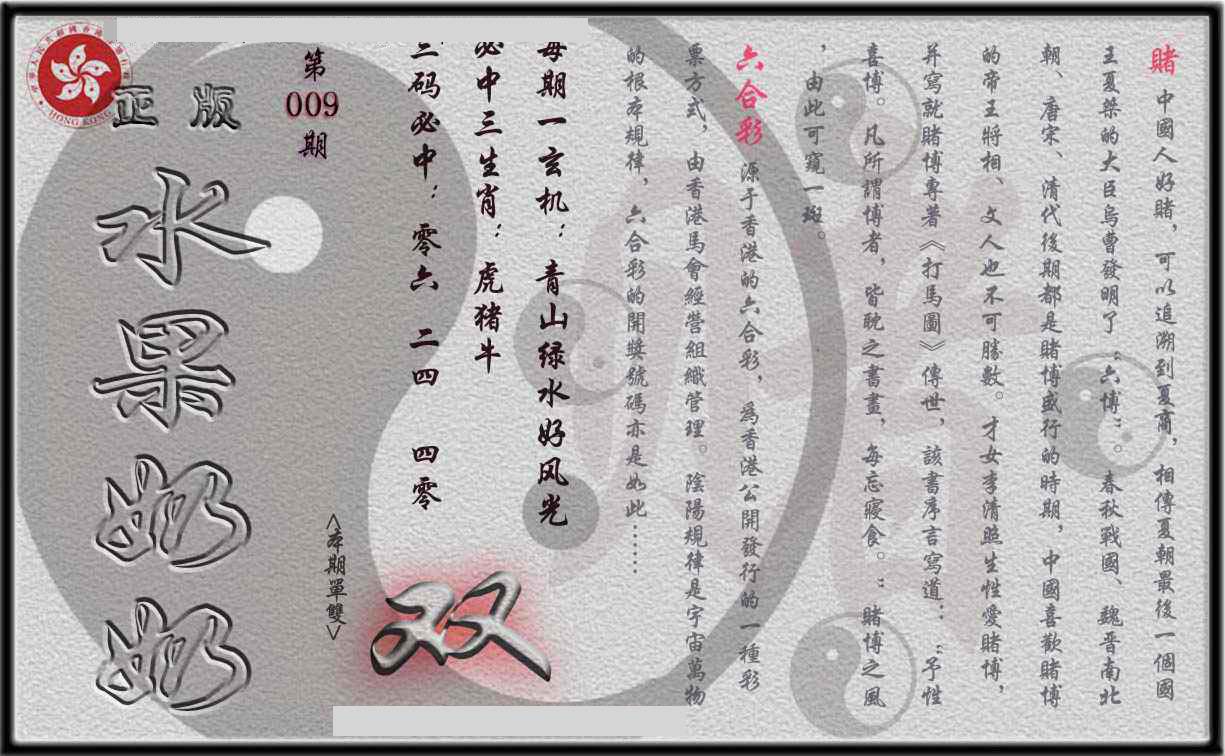 賭 中國人好賭，可以追溯到夏商，相傳夏朝最後一個國
王夏桀的大臣烏曹發明了“六博”。春秋戰國、魏晋南北
朝、唐宋、清代後期都是賭博盛行的時期，中國喜歡賭博
的帝王將相、文人也不可勝數。才女李清照生性愛賭博，
并寫就賭博專著《打馬圖》傳世，該書序言寫道：“予性
喜博。凡所謂博者，皆耽之書晝，每忘寢食。”賭博之風
，由此可窺一斑。
六合彩 源于香港的六合彩，爲香港公開發行的一種彩
票方式，由香港馬會經營組織管理。陰陽規律是宇宙萬物
的根本規律，六合彩的開獎號碼亦是如此……
每期一玄机：青山绿水好风光
必中三生肖：虎猪牛
三码必中：零六 二四 四零
双
<本期單雙>
第
009
期
正版
水果奶奶
HONG KONG